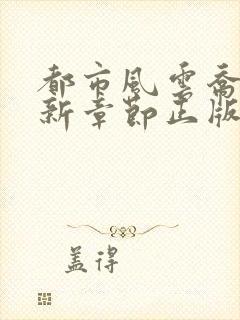 都市風雲喬
新章節正版
盖得